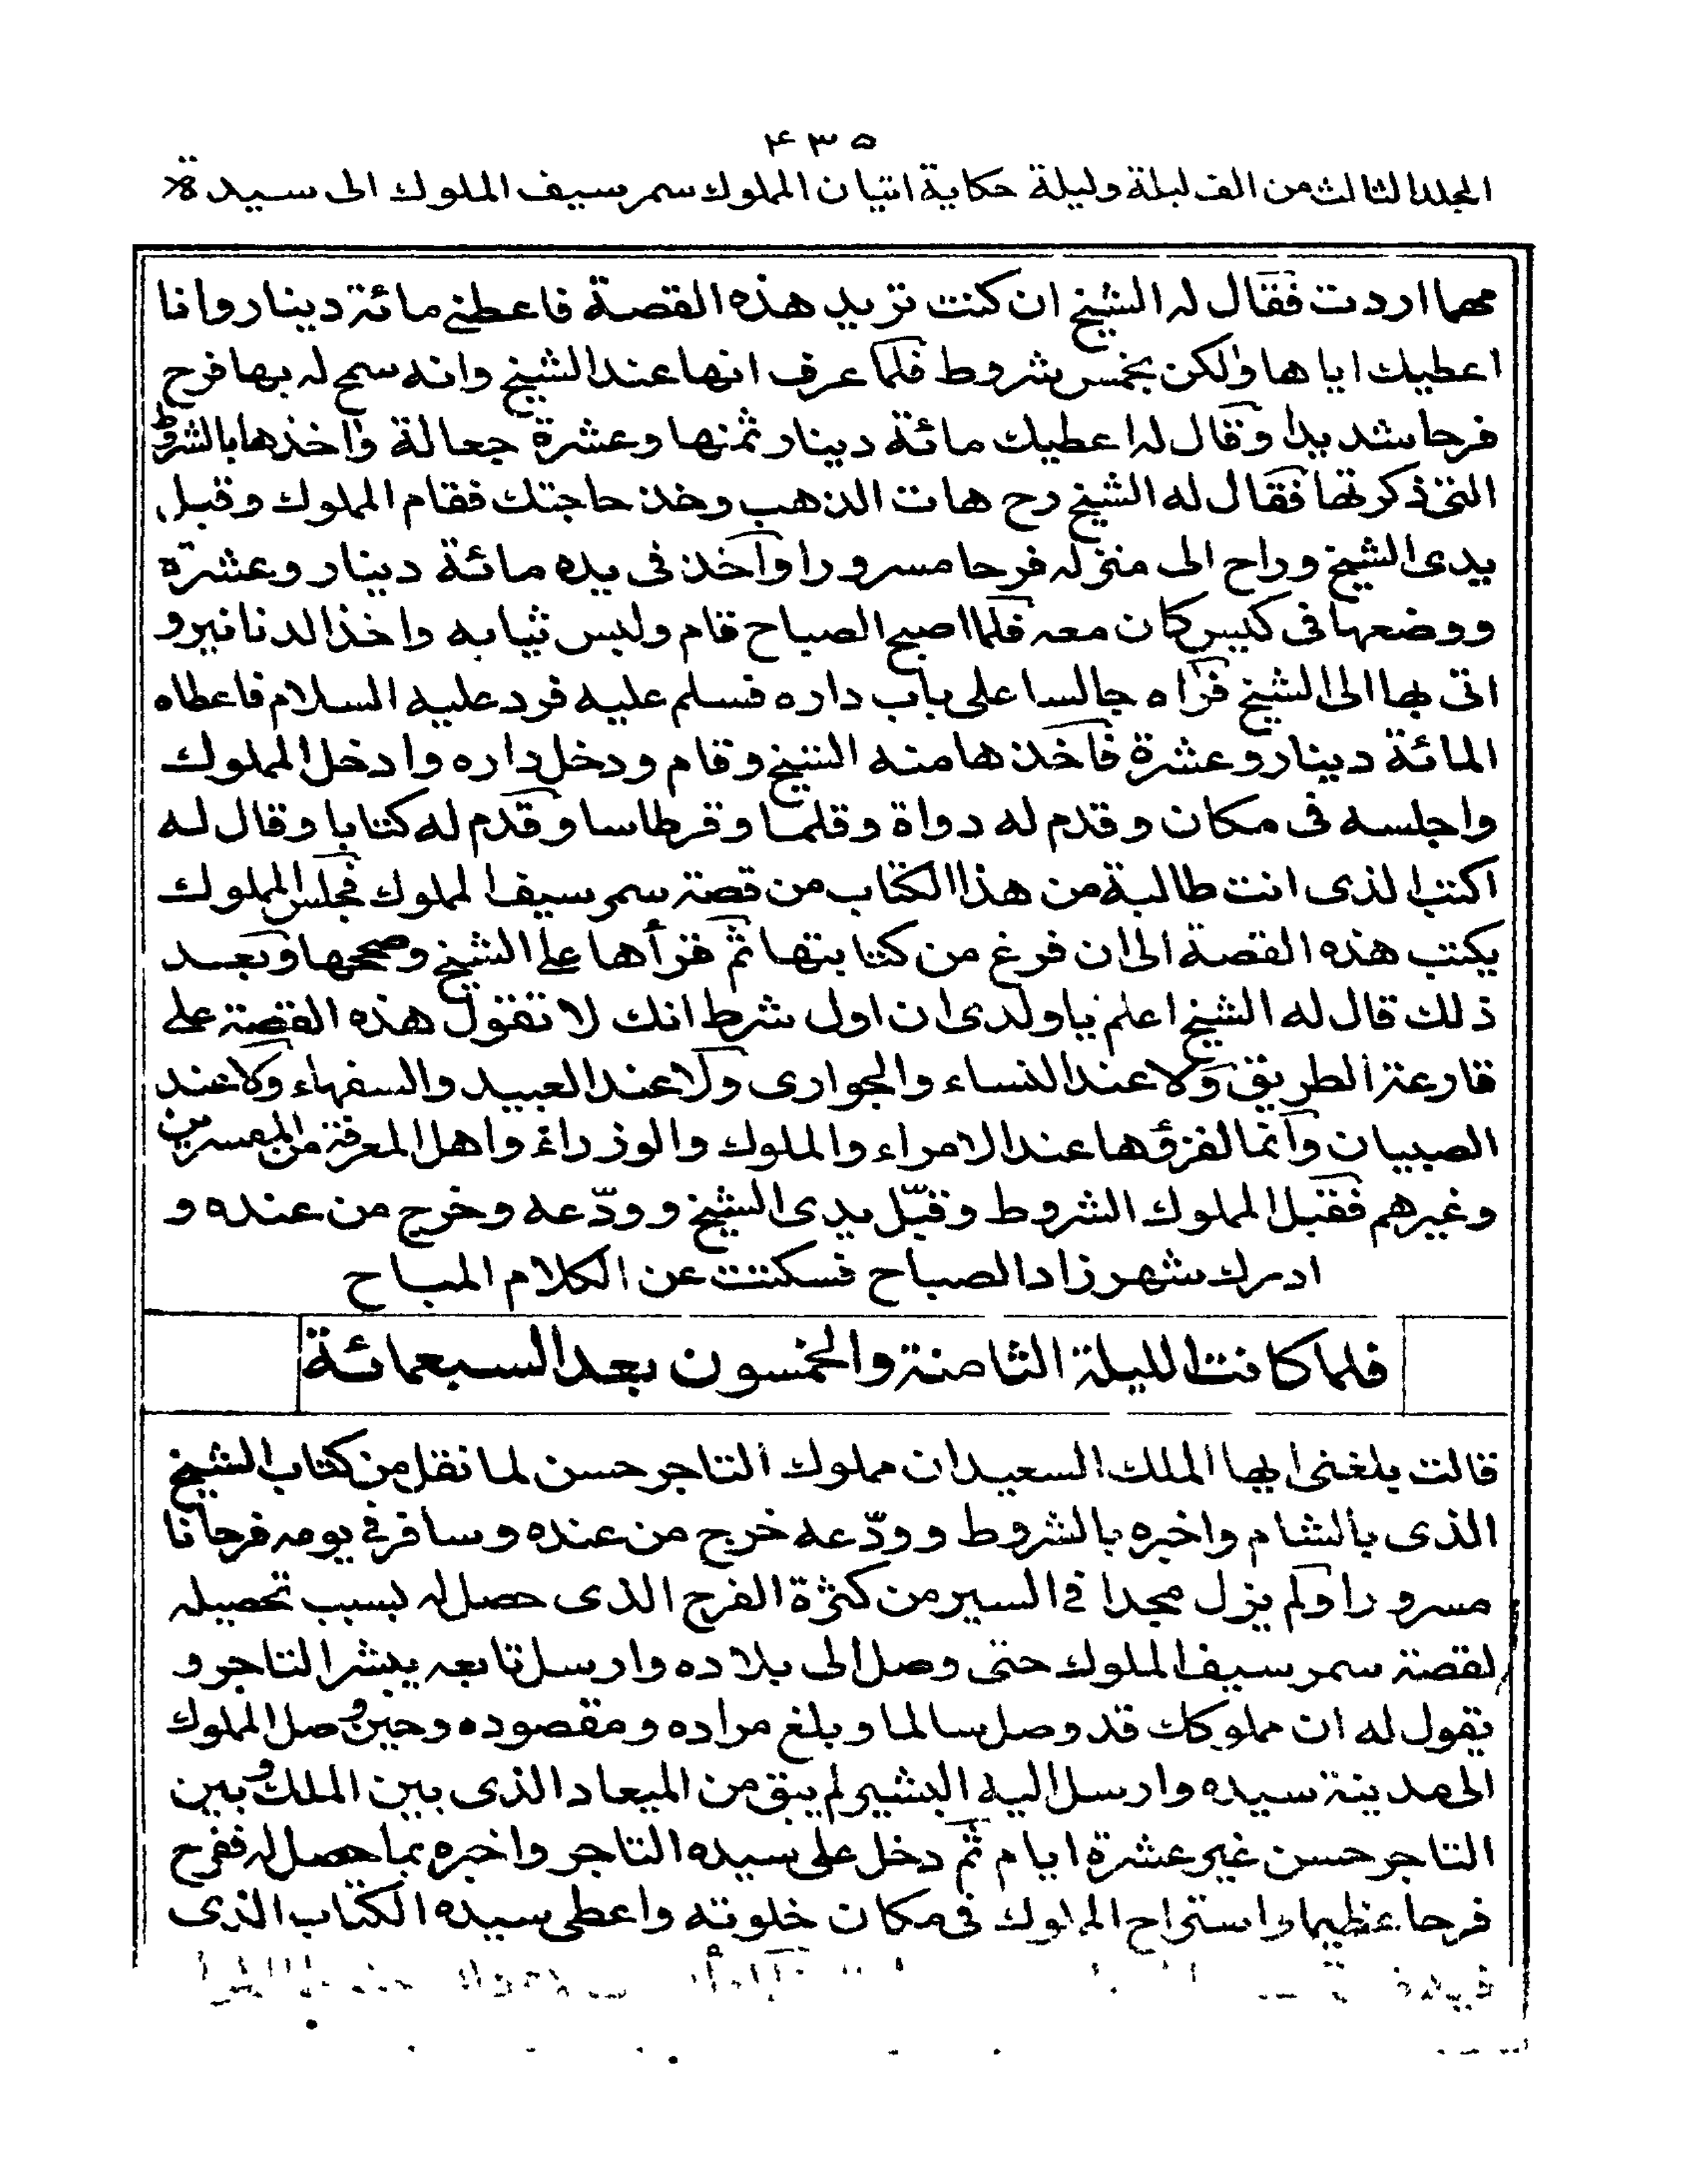 ۴۳۵
المجلد الثالث من الف ليلة وليلة حكاية اتيان المملوك سمر سيف الملوك الى سيده
مهما اردت فقال له الشيخ ان كنت تريد هذه القصة فاعطني مائة دينار وانا
اعطيك اياها ولكن بخمس شروط فلما عرف انها عند الشيخ وانه سمح له بها فرح
فرحا شديدا وقال له اعطيك مائة دينار ثمنها وعشرة جعالة واخذها بالشروط
التي ذكرتها فقال له الشيخ رح هات الذهب وخذ حاجتك فقام المملوك وقبل
يدى الشيخ وراح الى منزله فرحا مسرورا واخذ فى يده مائة دينار وعشرة
ووضعها فى كيس كان معه فلما اصبح الصباح قام ولبس ثيابه واخذ الدنانير و
اتى بها الى الشيخ فراه جالسا على باب داره فسلم عليه فرد عليه السلام فاعطاه
المائة دينار وعشرة فاخذها منه الشيخ وقام ودخل داره وادخل المملوك
واجلسه فى مكان وقدم له دواة وقلما وقرطاسا وقدم له كتابا وقال له
اكتب الذى انت طالبة من هذا الكتاب من قصة سمر سيف الملوك فجلس المملوك
يكتب هذه القصة الى ان فرغ من كتابتها ثم قرأها على الشيخ وصححها وبعد
ذلك قال له الشيخ اعلم يا ولدى ان اول شرط انك لا تقول هذه القصة على
قارعة الطريق ولا عند النساء والجوارى ولا عند العبيد والسفهاء ولا عند
الصبيان وانما تقرؤها عند الامراء والملوك والوزراء واهل المعرفة من المفسرين
وغيرهم فقبل المملوك الشروط وقبّل يدى الشيخ وودّعه وخرج من عنده و
ادرك شهرزاد الصباح فسكتت عن الكلام المباح
فلما كانت الليلة الثامنة والخمسون بعد السبعمائة
قالت بلغنى ايها الملك السعيد ان مملوك التاجر حسن لما نقل من كتاب الشيخ
الذى بالشام واخبره بالشروط وودّعه خرج من عنده وسافر في يومه فرحانا
مسرورا ولم يزل مجدا في السير من كثرة الفرح الذى حصل له بسبب تحصيله
لقصة سمر سيف الملوك حتى وصل الى بلاده وارسل تابعه يبشر التاجر و
يقول له ان مملوكك قد وصل سالما وبلغ مراده ومقصوده وحين وصل المملوك
الى مدينة سيده وارسل اليه البشير لم يبق من الميعاد الذى بين الملك وبين
التاجر حسن غير عشرة ايام ثم دخل على سيده التاجر واخبره بما حصل له ففرح
فرحا عظيما واستراح المملوك فى مكان خلوته واعطى سيده الكتاب الذى